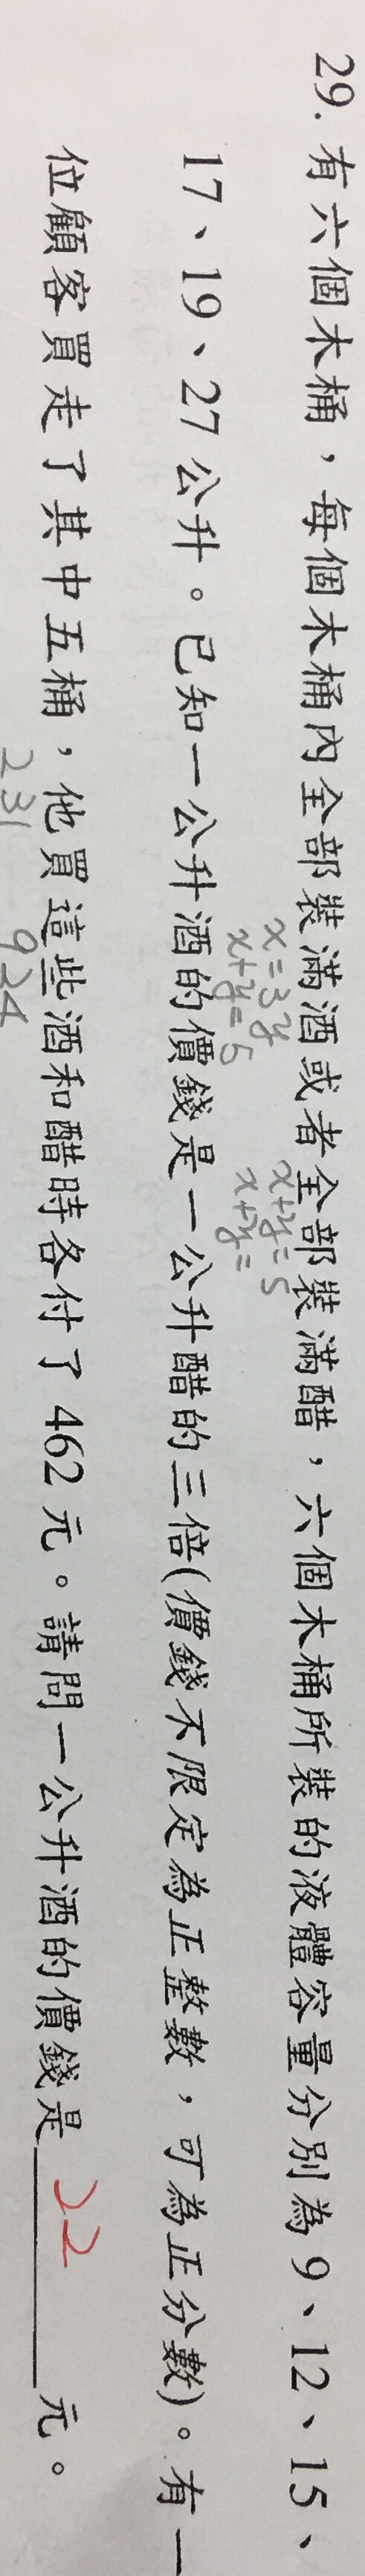 29. 有六個木桶，每個木桶內全部裝滿酒或者全部裝滿醋，六個木桶所裝的液體容量分別為 9、12、15、
x=3y
x+y=5
x+y=5
x+y=
17、19、27 公升。已知一公升酒的價錢是一公升醋的三倍(價錢不限定為正整數，可為正分數)。有一
位顧客買走了其中五桶，他買這些酒和醋時各付了 462 元。請問一公升酒的價錢是 22 元。
231
924